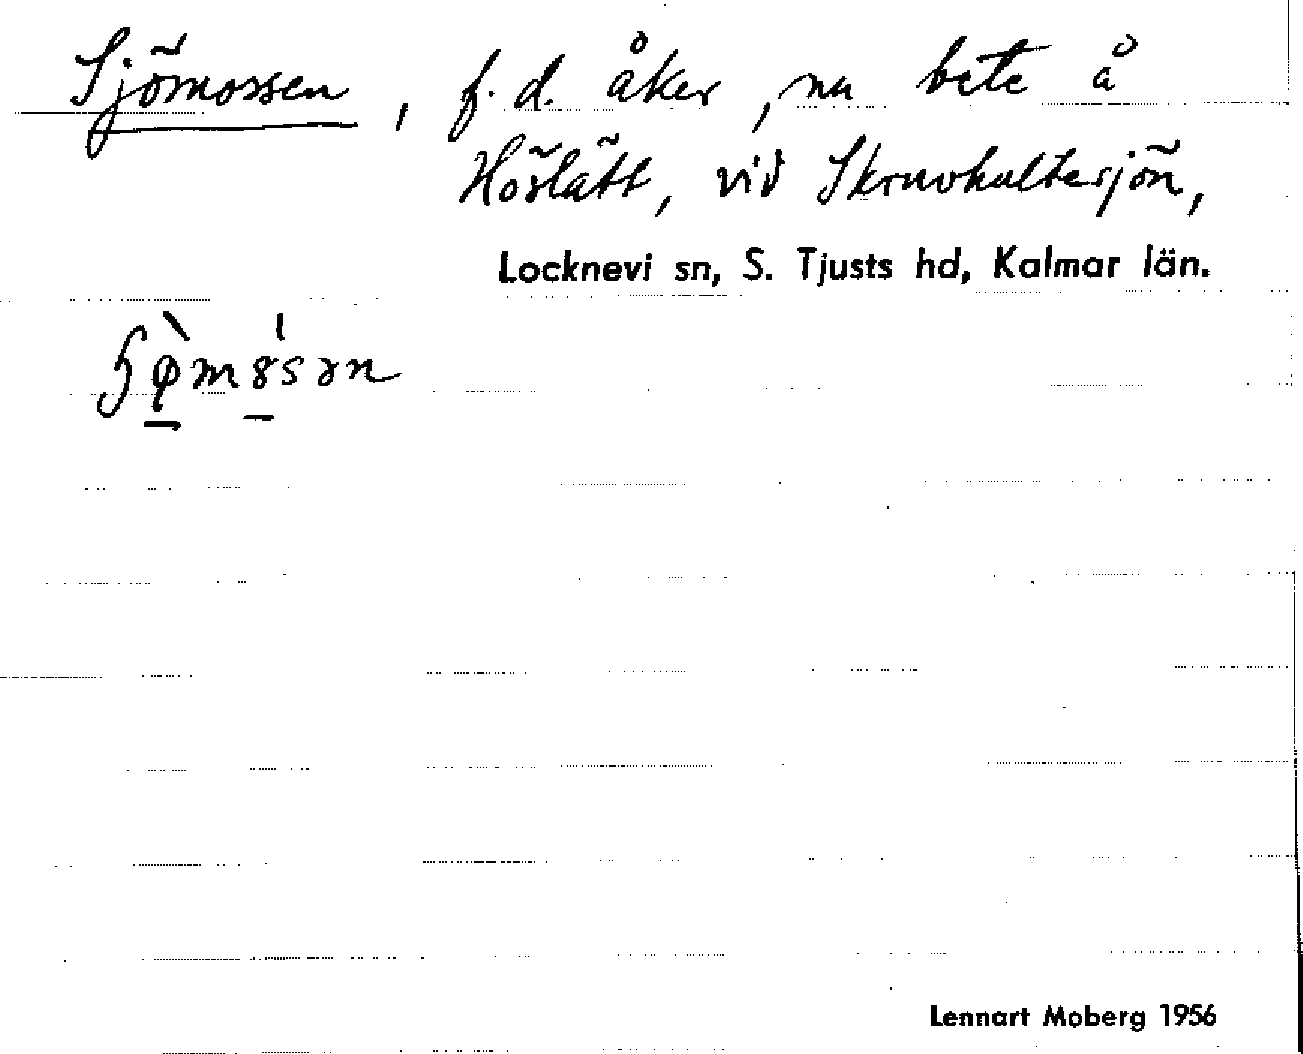 Sjömossen, f.d. åker, nu bete å
Höslätt, vid Skruvhultesjön,
Locknevi sn, S. Tjusts hd, Kalmar län.
Lennart Moberg 1956